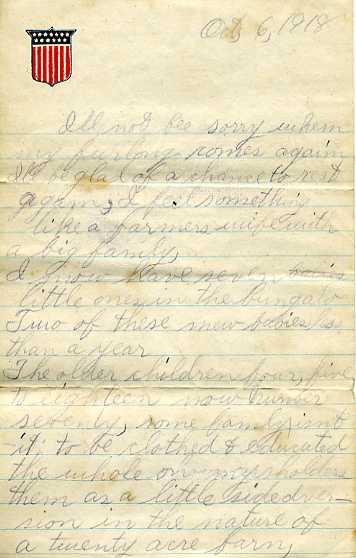 Oct, 6, 1918
I'll not bee sorry when
my furlong comes again
I'll be glad of a chance to rest
again, I feel something
like a farmers wife with
a big family,
I now have seven
little ones in the bungalo
Two of these new babies less
than a year
The other children four, five
to eighteen now number
seventy, some family isnt
it, to be clothed & educated
the whole on my sholders
them as a little sidediver-
sion in the nature of
a twenty acre farm,